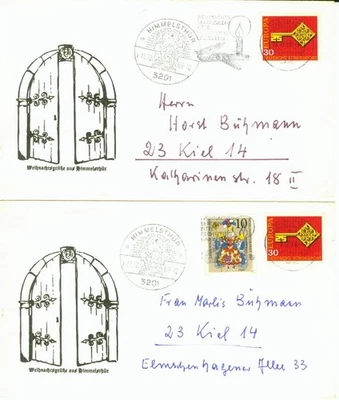 HIMMELSTHÜR
3201
EUROPA
30
Herrn
Horst Bühmann
23 Kiel 14
Katharinenstr. 18 II
Weihnachtsgrüße aus Himmelsthür
HIMMELSTHÜR
3201
10
EUROPA
30
Frau Marlis Bühmann
23 Kiel 14
Elmschenhagener Allee 33
Weihnachtsgrüße aus Himmelsthür